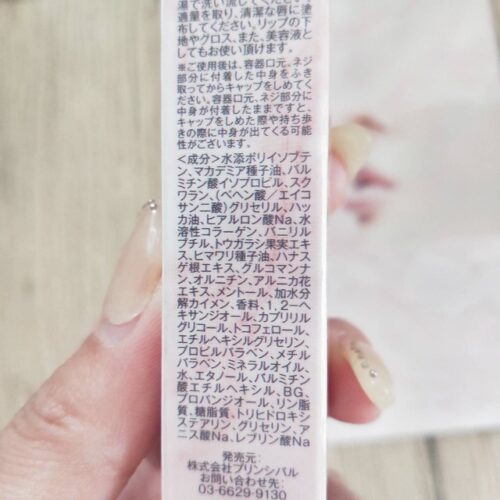 湯で洗い流してください
適量を取り、清潔な唇に塗
布してください。リップの下
地やグロス、また、美容液と
してもお使い頂けます。
※ご使用後は、容器口元、ネジ
部分に付着した中身をふき
取ってからキャップをしめてく
ださい。容器口元、ネジ部分に
中身が付着したままですと、
キャップをしめた際や持ち歩
きの際に中身が出てくる可能
性がございます。
<成分>水添ポリイソブテ
ン、マカデミア種子油、パル
ミチン酸イソプロピル、スク
ワラン、(ベヘン酸/エイコ
サン二酸)グリセリル、ハッ
カ油、ヒアルロン酸Na、水
溶性コラーゲン、バニリルブ
チル、トウガラシ果実エキ
ス、ヒマワリ種子油、ハナス
ゲ根エキス、グルコマンナ
ン、オルニチン、アルニカ花
エキス、メントール、加水分
解カイメン、香料、1,2-ヘ
キサンジオール、カプリリル
グリコール、トコフェロール、
エチルヘキシルグリセリン、
プロピルパラベン、メチルパ
ラベン、ミネラルオイル、
水、エタノール、パルミチン
酸エチルヘキシル、BG、
プロパンジオール、リン脂
質、糖脂質、トリヒドロキシ
ステアリン、グリセリン、ア
ニス酸Na、レブリン酸Na
発売元:
株式会社プリンシパル
お問い合わせ先:
03-6629-9130